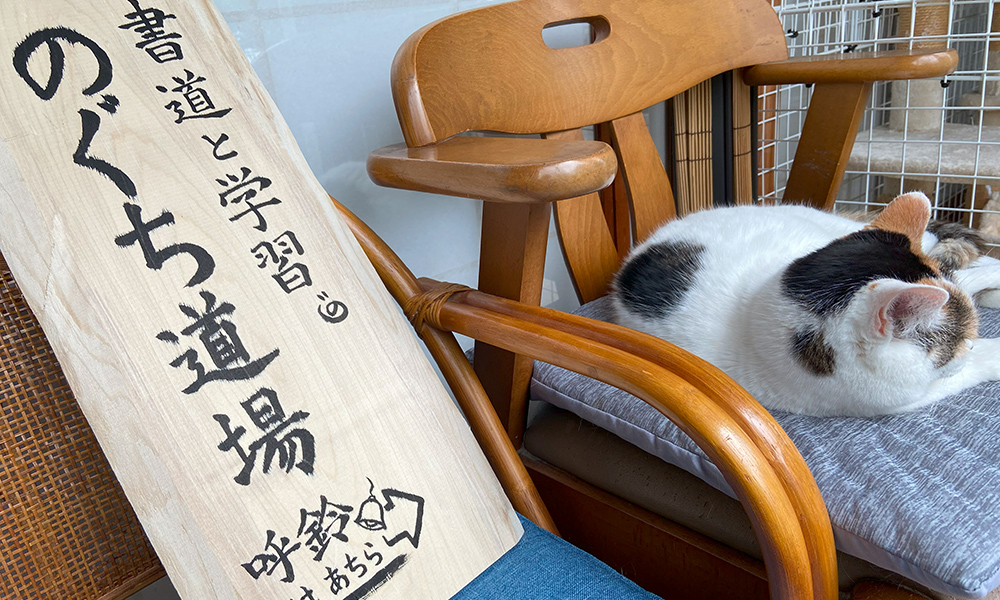 書道と学習
のぐち道場
呼鈴
はあちら